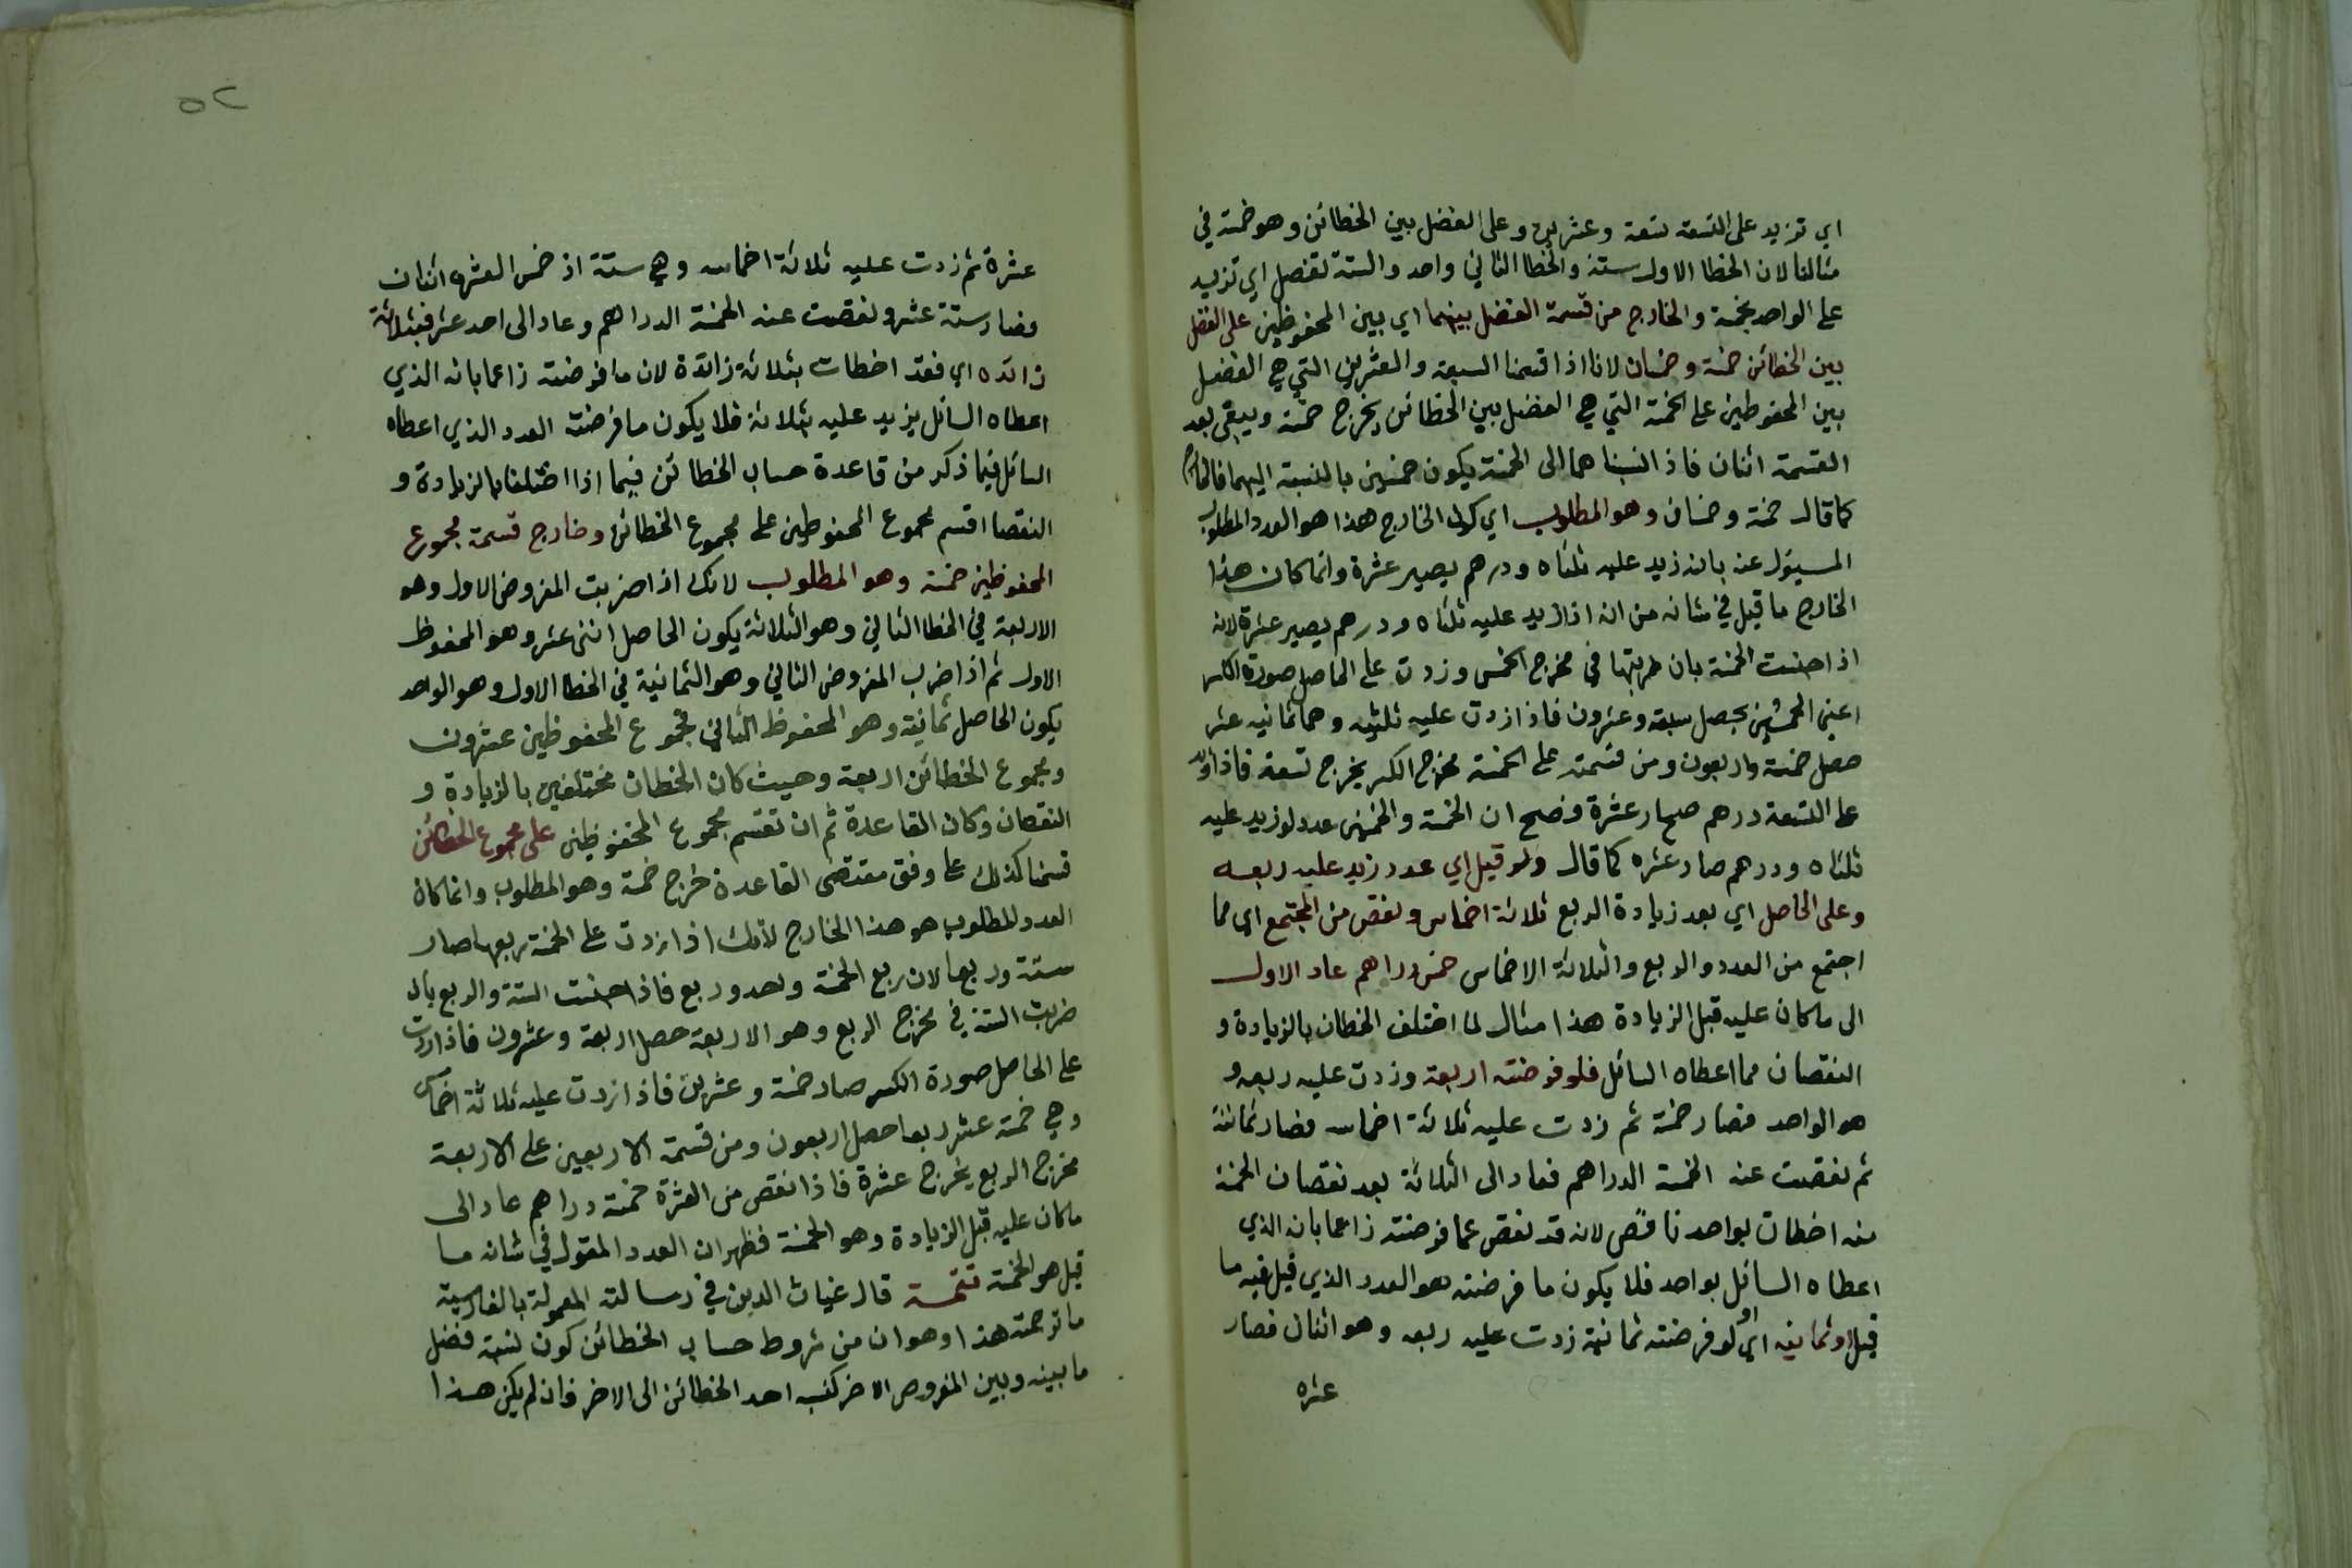 اي تزيد على التسعة تسعة وعشرين وعلى الفضل بين الخطائن وهو خمسة في
مثالنا لان الخطا الاول ستة والخطا الثاني واحد والستة تفضل اي تزيد
على الواحد بخمسة والخارج من قسمة الفضل بينهما اي بين المحفوظين على الفضل
بين الخطائن خمسة وخمسان لانا اذا قسمنا السبعة والعشرين التي هي الفضل
بين المحفوظين على الخمسة التي هي الفضل بين الخطائن يخرج خمسة ويبقى بعد
القسمة اثنان فاذا نسبناهما الى الخمسة يكون خمسين بالنسبة اليهما فالخارج
كما قال خمسة وخمسان وهو المطلوب اي كون الخارج هذا هو العدد المطلوب
المسئول عنه بانه زيد عليه ثلثاه ودرهم يصير عشرة وانما كان هذا
الخارج ما قيل في شانه من انه اذا زيد عليه ثلثاه ودرهم يصير عشرة لانه
اذا جنست الخمسة بان ضربتها في مخرج الخمس وزدت على الحاصل صورة الكسر
اعني الخمسين يحصل سبعة وعشرون فاذا زدت عليه ثلثيه وهما ثمانيه عشر
حصل خمسة واربعون ومن قسمته على الخمسة مخرج الكسر يخرج تسعة فاذا زيد
على التسعة درهم صار عشرة فصح ان الخمسة والخمسين عدد لو زيد عليه
ثلثاه ودرهم صار عشره كما قال ولو قيل اي عدد زيد عليه ربعه
وعلى الحاصل اي بعد زيادة الربع ثلاثة اخماس ونقص من المجتمع اي مما
اجتمع من العدد والربع والثلاثة الاخماس خمس دراهم عاد الاول
الى ما كان عليه قبل الزيادة هذا مثال لما اختلف الخطان بالزيادة و
النقصان مما اعطاه السائل فلو فرضته اربعة وزدت عليه ربعه و
هو الواحد فصار خمسة ثم زدت عليه ثلاثة اخماسه فصار ثمانية
ثم نقصت عنه الخمسة الدراهم فعاد الى الثلاثة بعد نقصان الخمسة
منه اخطات بواحد ناقص لانه قد نقص عما فرضته زاعما بانه الذي
اعطاه السائل بواحد فلا يكون ما فرضته هو العدد الذي قيل فيه ما
قيل او ثمانيه اي او لو فرضته ثمانية زدت عليه ربعه وهو اثنان فصار
عشره
٥٢
عشرة ثم زدت عليه ثلاثة اخماسه وهي ستة اذ خمس العشره اثنان
فصار ستة عشر ونقصت عنه الخمسة الدراهم وعاد الى احد عشر فبثلاثة
زائده اي فقد اخطات بثلاثة زائدة لان ما فرضته زاعما بانه الذي
اعطاه السائل يزيد عليه بثلاثة فلا يكون ما فرضت العدد الذي اعطاه
السائل فيما ذكر من قاعدة حساب الخطائن فيما اذا اختلفا بالزيادة و
النقصا اقسم مجموع المحفوظين على مجموع الخطائن وخارج قسمة مجموع
المحفوظين خمسة وهو المطلوب لانك اذا ضربت المفروض الاول وهو
الاربعة في الخطا الثاني وهو الثلاثة يكون الحاصل اثني عشر وهو المحفوظ
الاول ثم اذا ضرب المفروض الثاني وهو الثمانية في الخطا الاول وهو الواحد
يكون الحاصل ثمانية وهو المحفوظ الثاني فمجموع المحفوظين عشرون
ومجموع الخطائن اربعة وحيث كان الخطان مختلفين بالزيادة و
النقصان وكان القاعدة ثم ان تقسم مجموع المحفوظين على مجموع الخطائن
قسمنا كذلك على وفق مقتضى القاعدة خرج خمسة وهو المطلوب وانما كان
العدد المطلوب هو هذا الخارج لانك اذا زدت على الخمسة ربعها صار
ستة وربعا لان ربع الخمسة واحد وربع فاذا جنست الستة والربع بان
ضربت الستة في مخرج الربع وهو الاربعة حصل اربعة وعشرون فاذا زدت
على الحاصل صورة الكسر صار خمسة وعشرين فاذا زدت عليه ثلاثة اخماس
وهي خمسة عشر ربعا حصل اربعون ومن قسمة الاربعين على الاربعة
مخرج الربع يخرج عشرة فاذا نقص من العشرة خمسة دراهم عاد الى
ما كان عليه قبل الزيادة وهو الخمسة فظهر ان العدد المقول في شانه ما
قيل هو الخمسة تتمسة قال غياث الدين في رسالته المعمولة بالفارسية
ما ترجمته هذا وهو ان من شروط حساب الخطائن كون نسبة فضل
ما بينه وبين المفروض الاخر كنسبة احد الخطائن الى الاخر فان لم يكن هذا